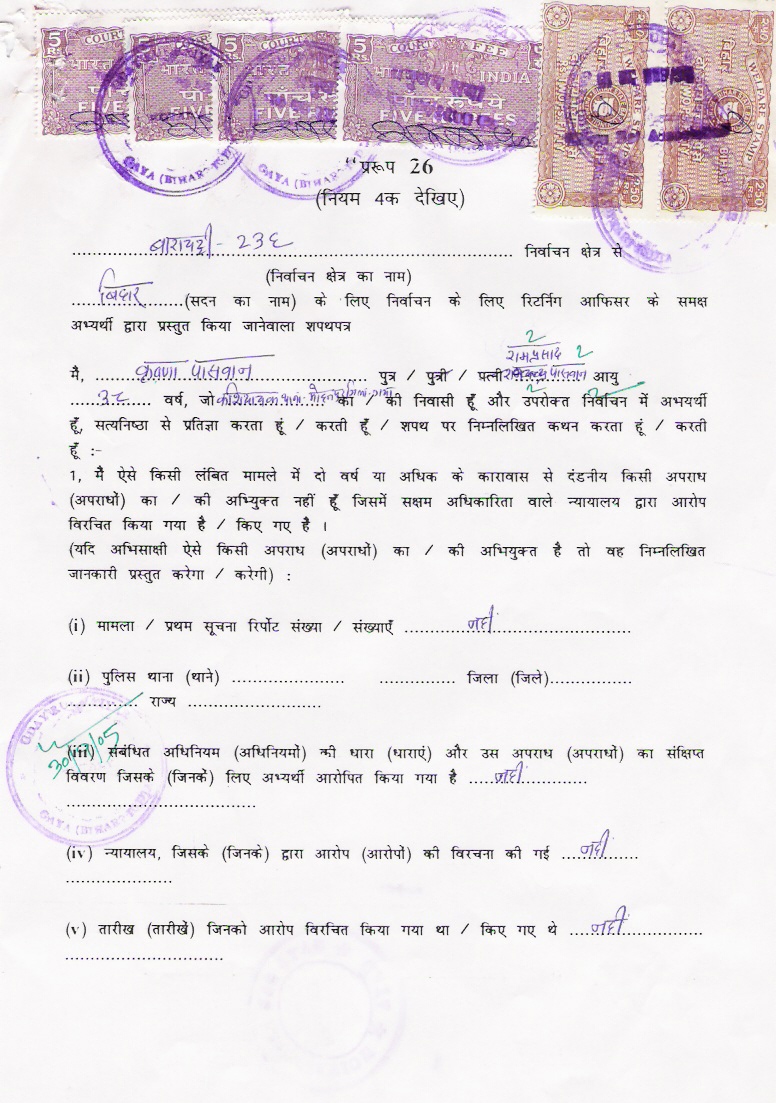 5 RS. COURT FEE INDIA
भारत
पाँच रुपये
FIVE RUPEES
WELFARE STAMP
बिहार BIHAR
2.50
GAYA (BIHAR)
"प्ररूप 26
(नियम 4क देखिए)
बाराचट्टी - 236 निर्वाचन क्षेत्र से
(निर्वाचन क्षेत्र का नाम)
बिहार (सदन का नाम) के लिए निर्वाचन के लिए रिटर्निग आफिसर के समक्ष
अभ्यर्थी द्वारा प्रस्तुत किया जानेवाला शपथपत्र
रामप्रसाद
मै, कृष्णा पासवान पुत्र / पुत्री / पत्नी पासवान आयु
३८ वर्ष, जो का / की निवासी हूँ और उपरोक्त निर्वाचन में अभयर्थी
हूँ, सत्यनिष्ठा से प्रतिज्ञा करता हूं / करती हूँ / शपथ पर निम्नलिखित कथन करता हूं / करती
हूँ :-
1, मैं ऐसे किसी लंबित मामले में दो वर्ष या अधिक के कारावास से दंडनीय किसी अपराध
(अपराधों) का / की अभ्युिक्त नहीं हूँ जिसमें सक्षम अधिकारिता वाले न्यायालय द्वारा आरोप
विरचित किया गया है / किए गए है ।
(यदि अभिसाक्षी ऐसे किसी अपराध (अपराधों) का / की अभियुक्त है तो वह निम्नलिखित
जानकारी प्रस्तुत करेगा / करेगी) :
(i) मामला / प्रथम सूचना रिर्पोट संख्या / संख्याएँ नहीं
(ii) पुलिस थाना (थाने) जिला (जिले)
राज्य
30/9/05
(iii) संबंधित अधिनियम (अधिनियमों) की धारा (धाराएं) और उस अपराध (अपराधों) का संक्षिप्त
विवरण जिसके (जिनके) लिए अभ्यर्थी आरोपित किया गया है नहीं
GAYA (BIHAR)
(iv) न्यायालय, जिसके (जिनके) द्वारा आरोप (आरोपों) की विरचना की गई नहीं
(v) तारीख (तारीखें) जिनको आरोप विरचित किया गया था / किए गए थे नहीं